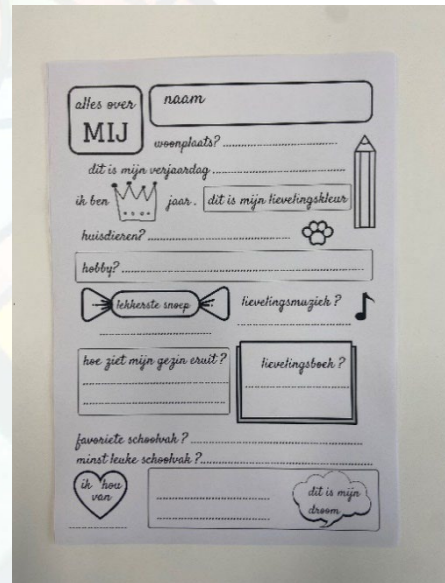 alles over
MIJ
naam
woonplaats?
dit is mijn verjaardag
ik ben jaar. dit is mijn lievelingskleur
huisdieren?
hobby?
lekkerste snoep lievelingsmuziek?
hoe ziet mijn gezin eruit? lievelingsboek?
favoriete schoolvak?
minst leuke schoolvak?
ik hou
van
dit is mijn
droom